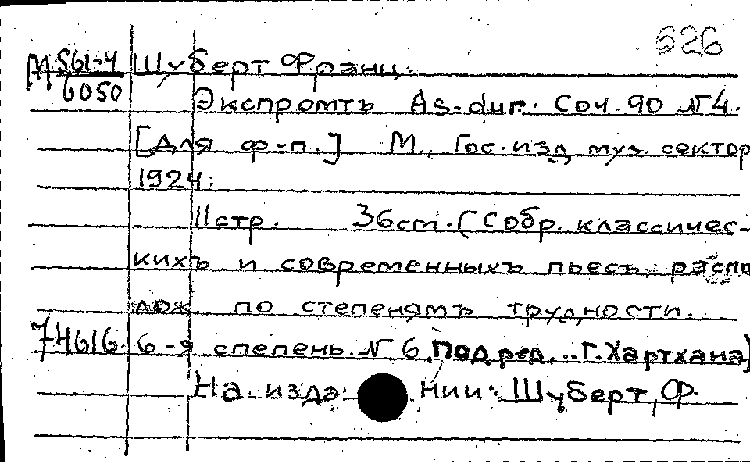 626
М 561-4 Шуберт Франц.
6050 Экспромтъ As-dur. Соч. 90 №4.
[Для ф-п.] М., Гос. изд. муз. сектор
1924.
11 стр. 36 cm. (Собр. классичес-
кихъ и современныхъ пьесъ, распо
лож по степенямъ трудности...
74616. 6-я степень. № 6. Под ред... Г. Хартхана)
На изда нии: Шуберт, Ф.